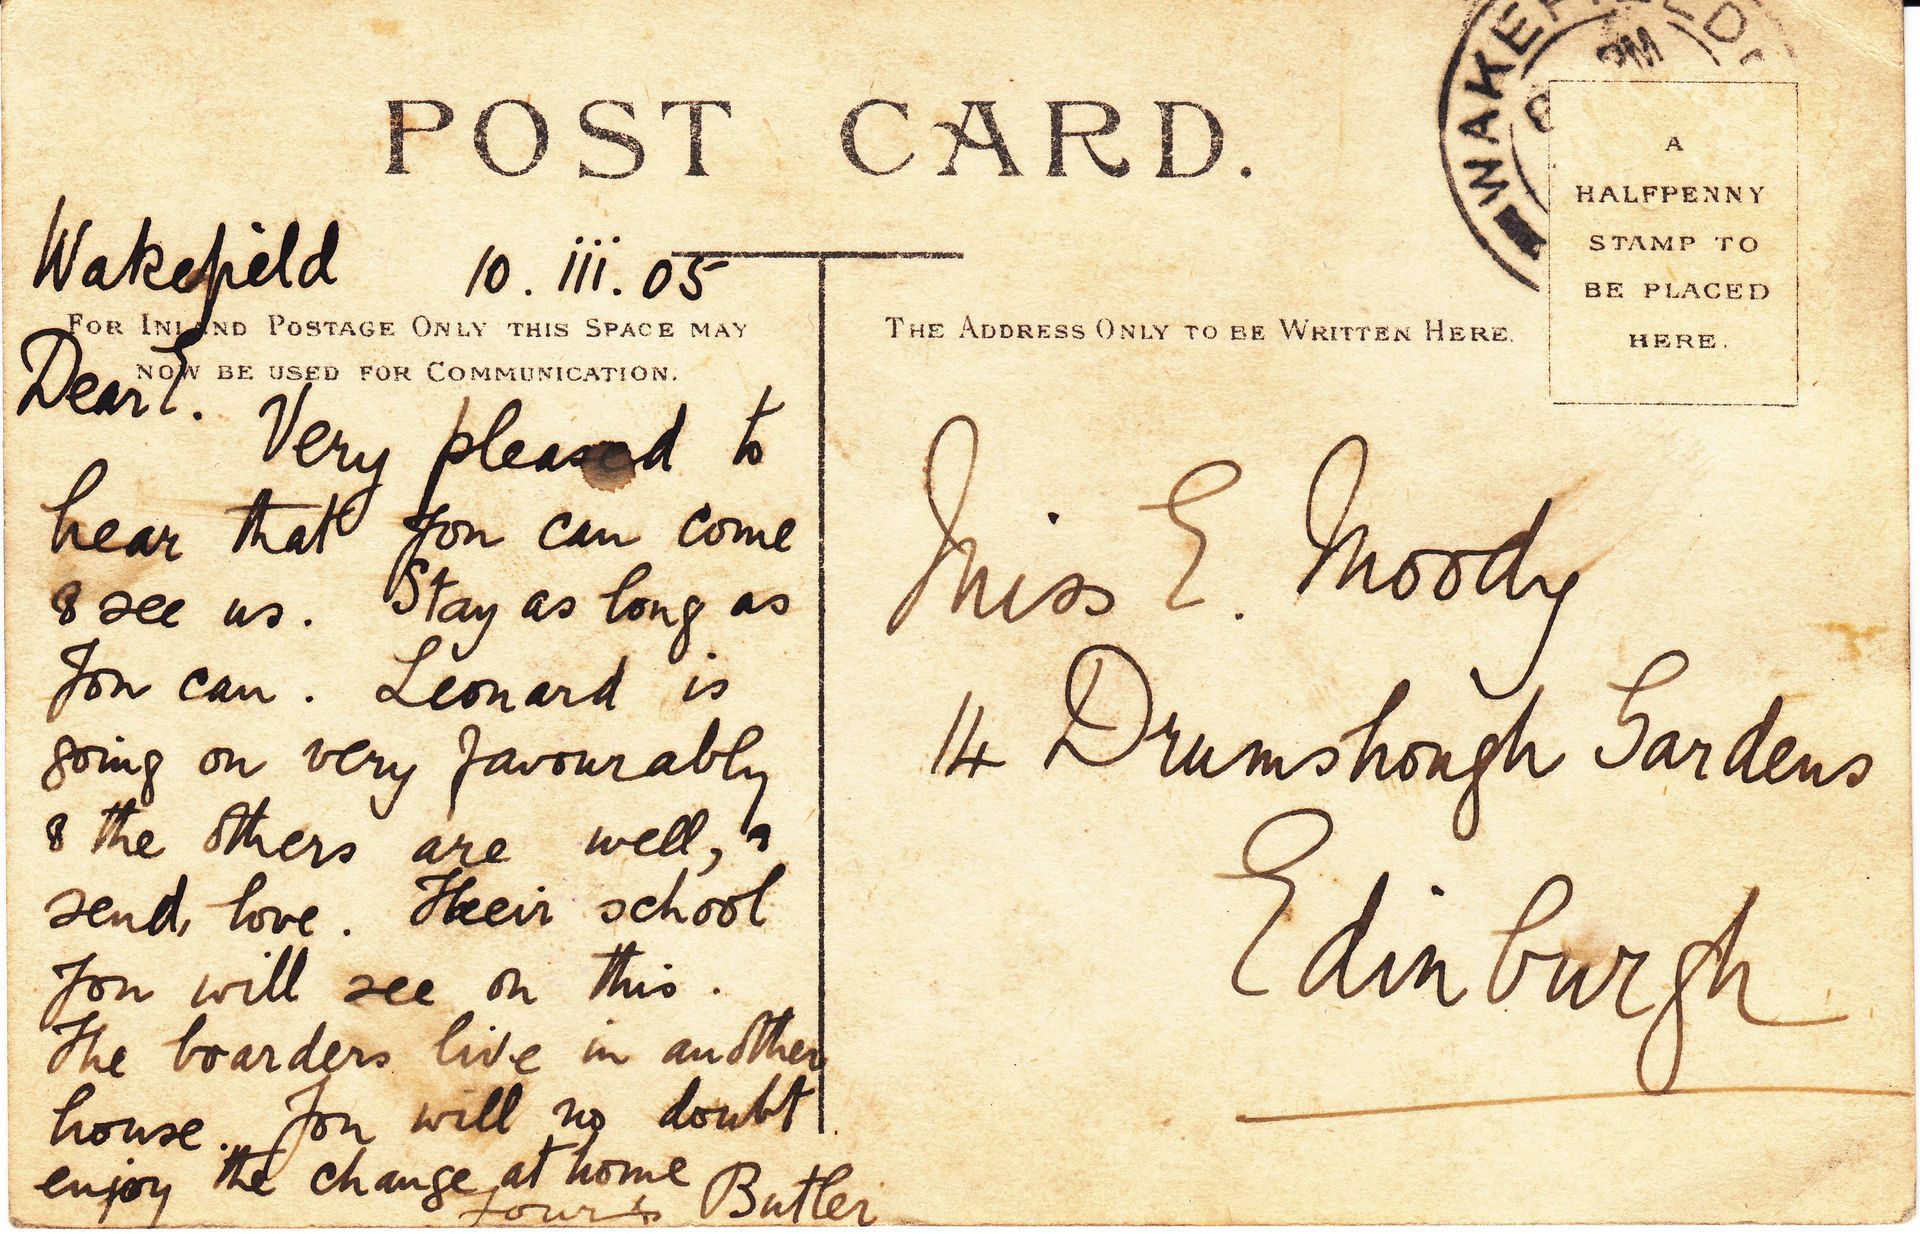 POST CARD.
WAKEFIELD
PM
A
HALFPENNY
STAMP TO
BE PLACED
HERE.
Wakefield 10. iii. 05
FOR INLAND POSTAGE ONLY THIS SPACE MAY
NOW BE USED FOR COMMUNICATION.
THE ADDRESS ONLY TO BE WRITTEN HERE.
Dear E.
Very pleased to
hear that you can come
& see us. Stay as long as
you can. Leonard is
going on very favourably
& the others are well, &
send love. Their school
you will see on this.
The boarders live in another
house. You will no doubt
enjoy the change at home
Yours Butler
Miss E. Moody
14 Drumshough Gardens
Edinburgh